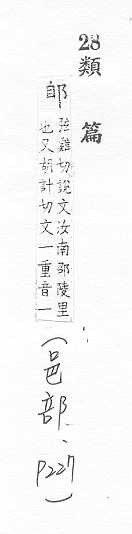 28類篇
郋
弦雞切說文汝南邵陵里
也又胡計切文一重音一
(邑部、P227)